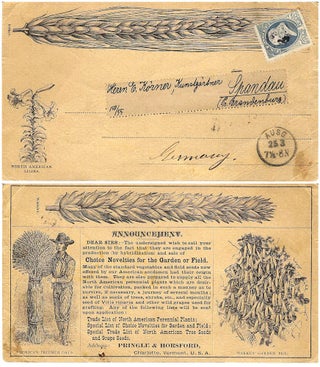 Herrn E. Körner, Kunstgärtner
Spandau
(Brandenburg)
Germany.
AUSG
25 3
NORTH AMERICAN
LILIES.
ANNOUNCEMENT.
DEAR SIRS: The undersigned wish to call your
attention to the fact that they are engaged in the
production by hybridization and sale of
Choice Novelties for the Garden or Field.
Many of the standard vegetables and field seeds now
offered by our American seedsmen had their origin
with them. They are also prepared to supply all the
North American perennial plants which are desir-
able for cultivation, packed in such a manner as to
survive, if necessary, a journey of several months;
as well as seeds of trees, shrubs, etc., and especially
seed of Vitis riparia and other wild grapes used for
grafting. Any of the following lists will be sent
upon application:
Trade List of North American Perennial Plants;
Special List of Choice Novelties for Garden and Field;
Special List of North American Tree Seeds
and Grape Seeds.
Address: PRINGLE & HORSFORD,
Charlotte, Vermont, U. S. A.
AMERICAN TRIUMPH OATS.